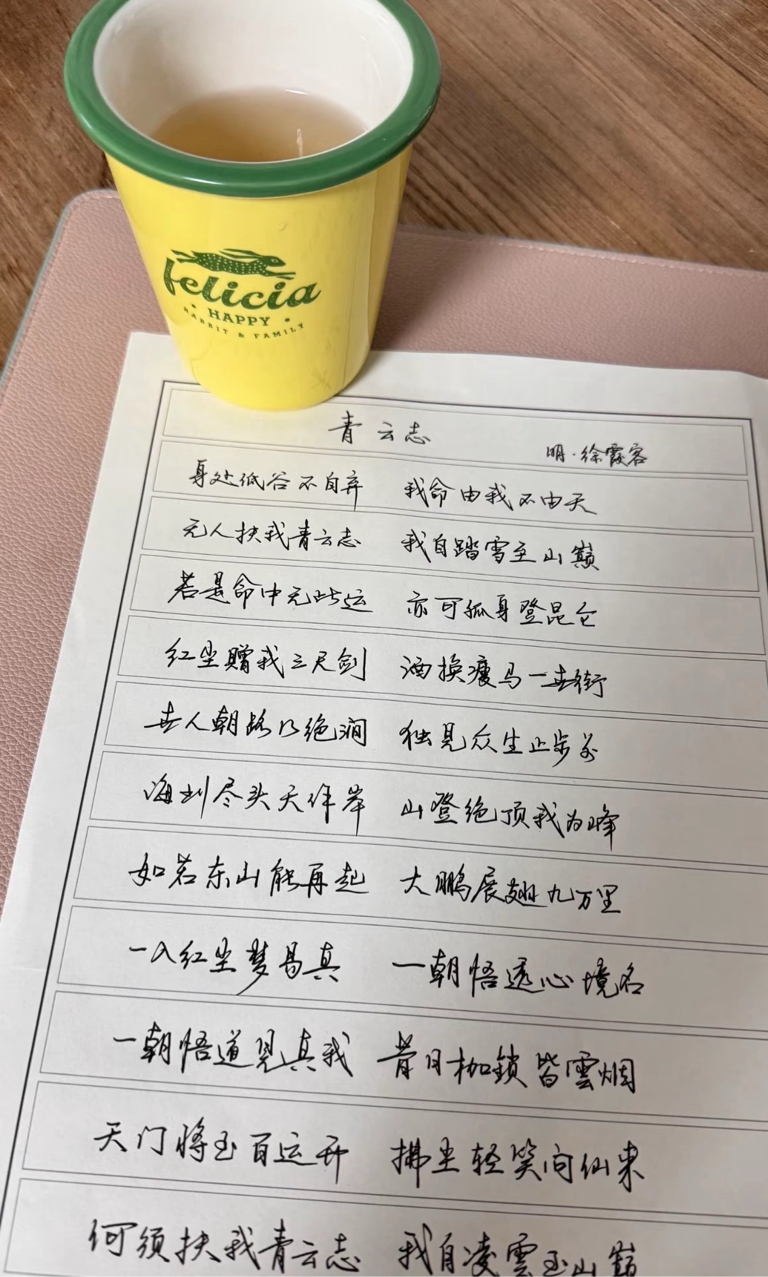 felicia
HAPPY
RABBIT & FAMILY
青云志
明·徐霞客
身处低谷不自弃 我命由我不由天
无人扶我青云志 我自踏雪至山巅
若是命中无此运 亦可孤身登昆仑
红尘赠我三尺剑 酒换瘦马一世街
世人朝路乃绝涧 独见众生止步前
海到尽头天作岸 山登绝顶我为峰
如若东山能再起 大鹏展翅九万里
一入红尘梦易真 一朝悟透心境名
一朝悟道见真我 昔日枷锁皆雲烟
天门将至百运开 拂尘轻笑问仙来
何须扶我青云志 我自凌雲至山巅